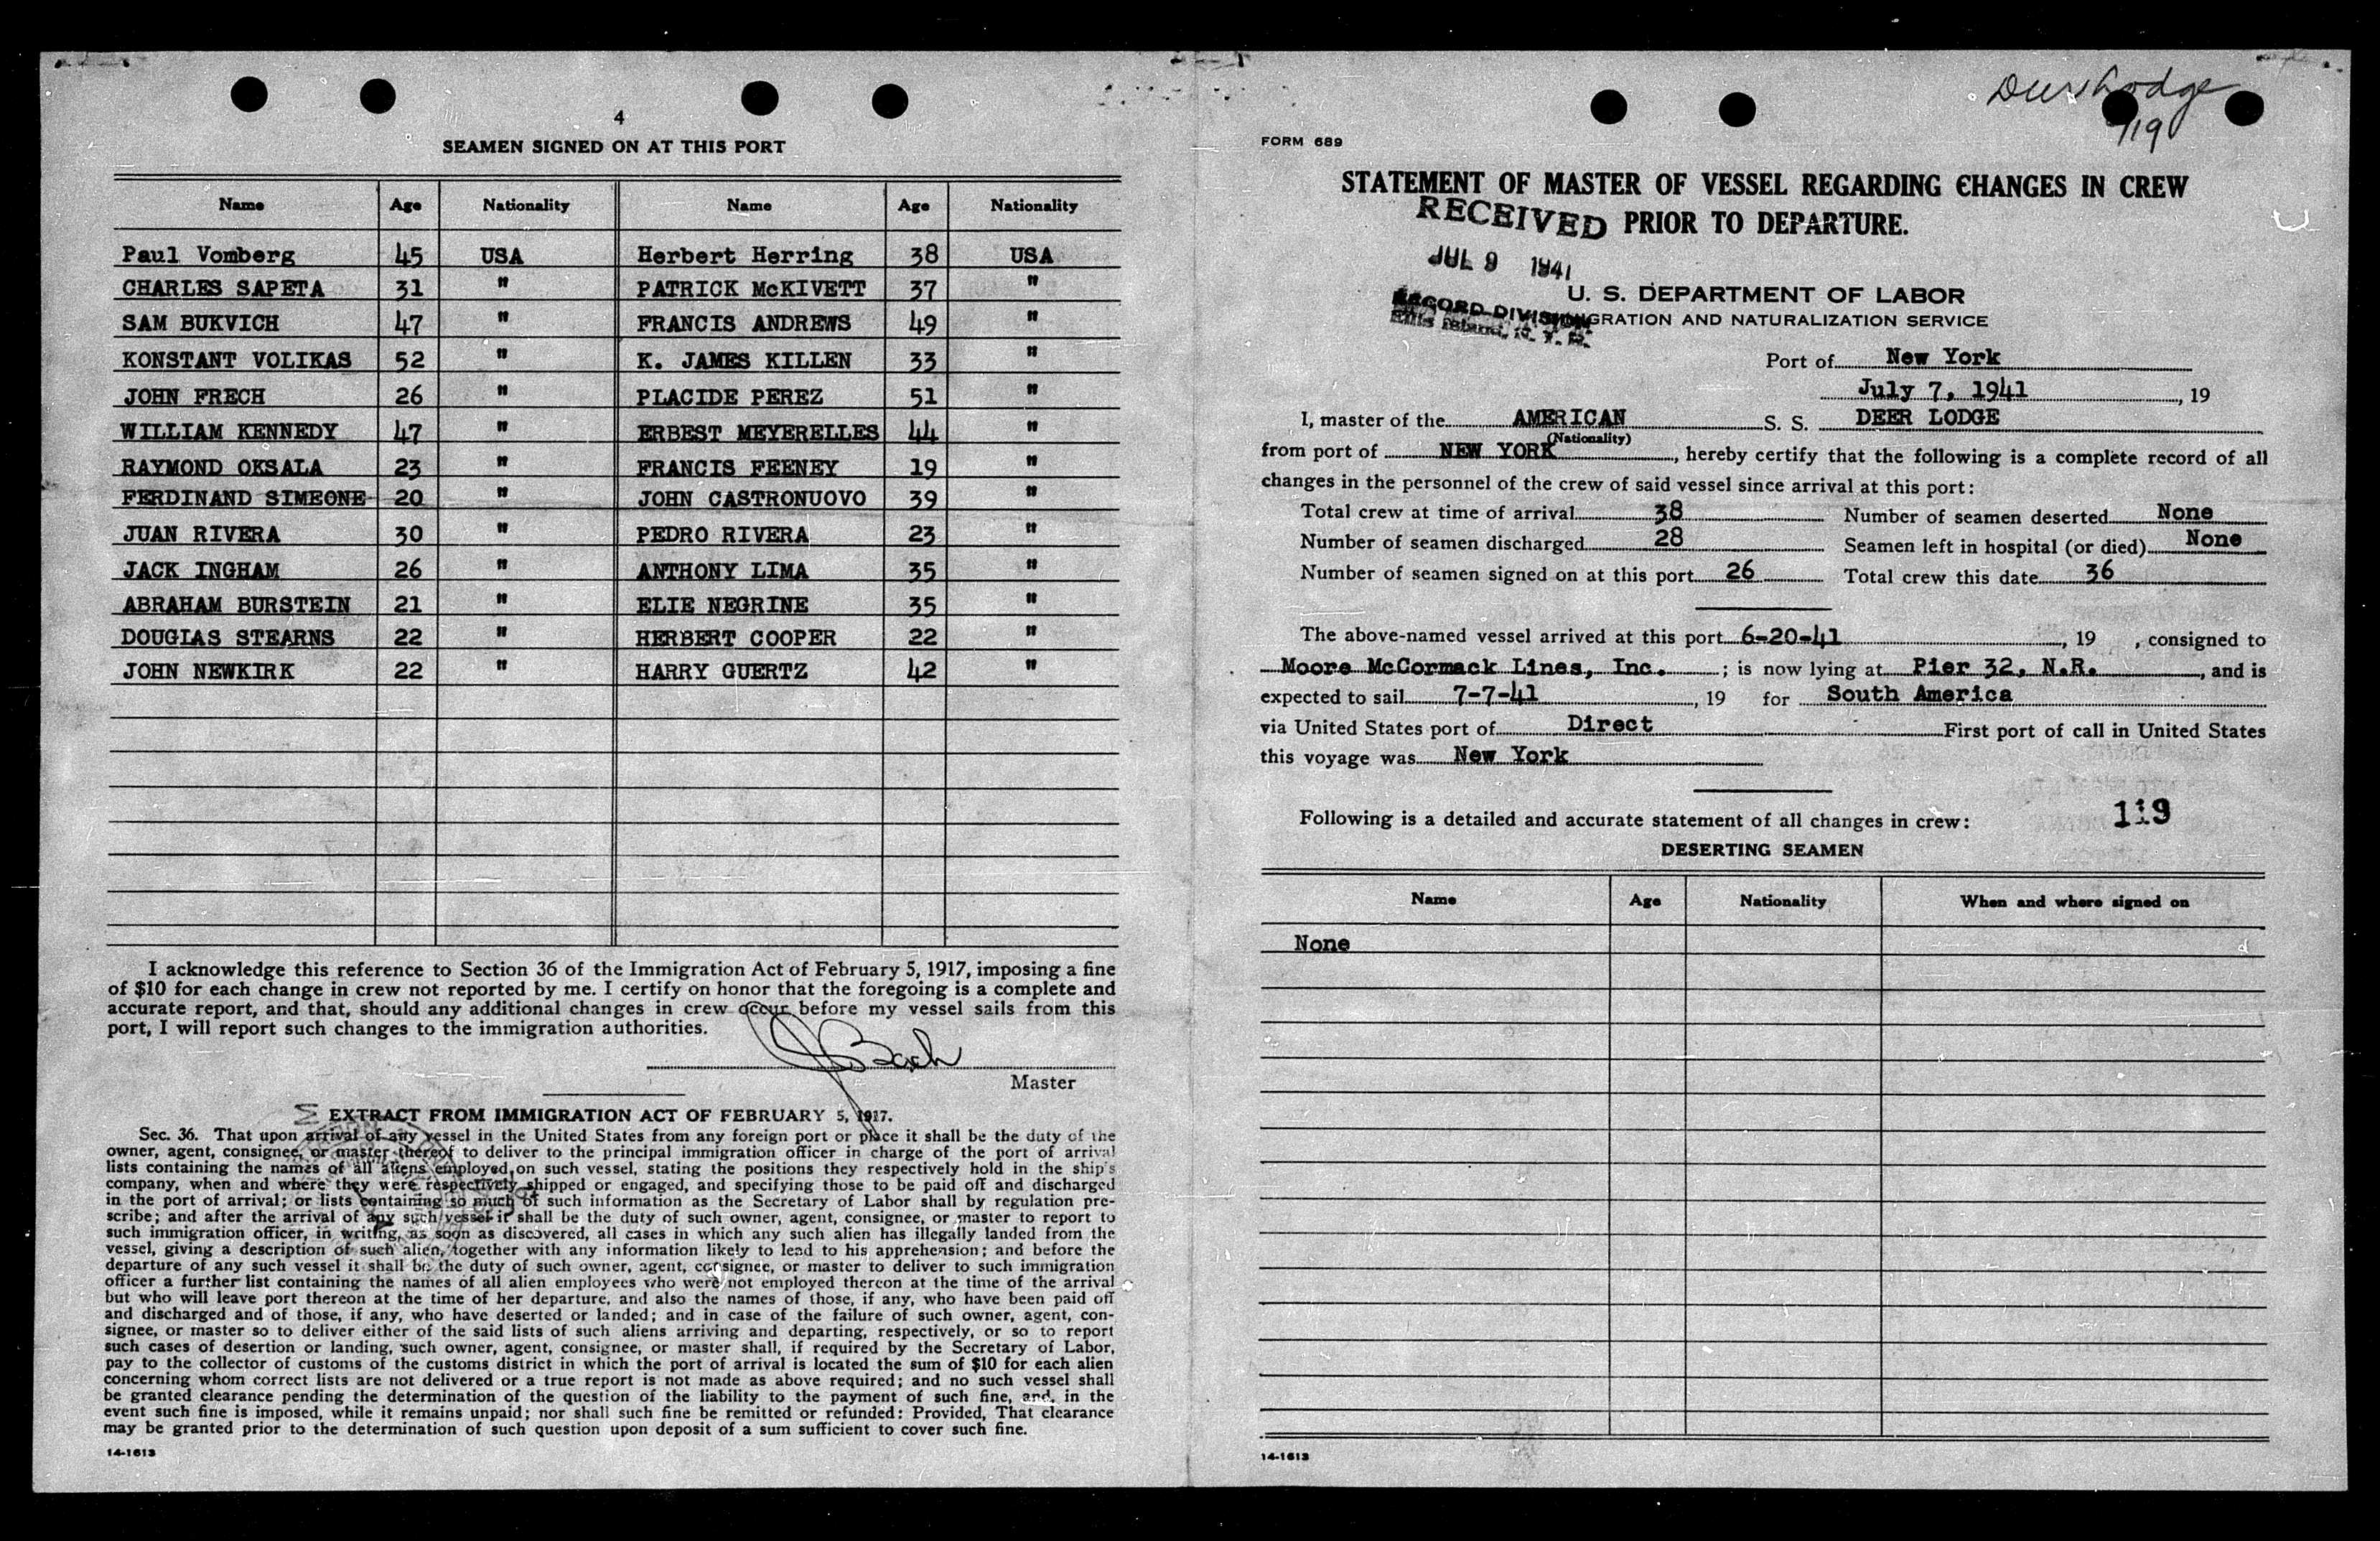 4
SEAMEN SIGNED ON AT THIS PORT
Name Age Nationality Name Age Nationality
Paul Vomberg 45 USA Herbert Herring 38 USA
CHARLES SAPETA 31 " PATRICK McKIVETT 37 "
SAM BUKVICH 47 " FRANCIS ANDREWS 49 "
KONSTANT VOLIKAS 52 " K. JAMES KILLEN 33 "
JOHN FRECH 26 " PLACIDE PEREZ 51 "
WILLIAM KENNEDY 47 " ERBEST MEYERELLES 44 "
RAYMOND OKSALA 23 " FRANCIS FEENEY 19 "
FERDINAND SIMEONE 20 " JOHN CASTRONUOVO 39 "
JUAN RIVERA 30 " PEDRO RIVERA 23 "
JACK INGHAM 26 " ANTHONY LIMA 35 "
ABRAHAM BURSTEIN 21 " ELIE NEGRINE 35 "
DOUGLAS STEARNS 22 " HERBERT COOPER 22 "
JOHN NEWKIRK 22 " HARRY GUERTZ 42 "
I acknowledge this reference to Section 36 of the Immigration Act of February 5, 1917, imposing a fine
of $10 for each change in crew not reported by me. I certify on honor that the foregoing is a complete and
accurate report, and that, should any additional changes in crew occur before my vessel sails from this
port, I will report such changes to the immigration authorities.
Bach
Master
EXTRACT FROM IMMIGRATION ACT OF FEBRUARY 5, 1917.
Sec. 36. That upon arrival of any vessel in the United States from any foreign port or place it shall be the duty of the
owner, agent, consignee, or master thereof to deliver to the principal immigration officer in charge of the port of arrival
lists containing the names of all aliens employed on such vessel, stating the positions they respectively hold in the ship's
company, when and where they were respectively shipped or engaged, and specifying those to be paid off and discharged
in the port of arrival; or lists containing so much of such information as the Secretary of Labor shall by regulation pre-
scribe; and after the arrival of any such vessel it shall be the duty of such owner, agent, consignee, or master to report to
such immigration officer, in writing, as soon as discovered, all cases in which any such alien has illegally landed from the
vessel, giving a description of such alien, together with any information likely to lead to his apprehension; and before the
departure of any such vessel it shall be the duty of such owner, agent, consignee, or master to deliver to such immigration
officer a further list containing the names of all alien employees who were not employed thereon at the time of the arrival
but who will leave port thereon at the time of her departure, and also the names of those, if any, who have been paid off
and discharged and of those, if any, who have deserted or landed; and in case of the failure of such owner, agent, con-
signee, or master so to deliver either of the said lists of such aliens arriving and departing, respectively, or so to report
such cases of desertion or landing, such owner, agent, consignee, or master shall, if required by the Secretary of Labor,
pay to the collector of customs of the customs district in which the port of arrival is located the sum of $10 for each alien
concerning whom correct lists are not delivered or a true report is not made as above required; and no such vessel shall
be granted clearance pending the determination of the question of the liability to the payment of such fine, and, in the
event such fine is imposed, while it remains unpaid; nor shall such fine be remitted or refunded: Provided, That clearance
may be granted prior to the determination of such question upon deposit of a sum sufficient to cover such fine.
14-1613
Deer Lodge
7/19
FORM 689
STATEMENT OF MASTER OF VESSEL REGARDING CHANGES IN CREW
PRIOR TO DEPARTURE.
RECEIVED
JUL 9 1941
RECORD DIVISION
Ellis Island, N. Y. H.
U. S. DEPARTMENT OF LABOR
IMMIGRATION AND NATURALIZATION SERVICE
Port of New York
July 7, 1941, 19
I, master of the AMERICAN S. S. DEER LODGE
(Nationality)
from port of NEW YORK, hereby certify that the following is a complete record of all
changes in the personnel of the crew of said vessel since arrival at this port:
Total crew at time of arrival 38 Number of seamen deserted None
Number of seamen discharged 28 Seamen left in hospital (or died) None
Number of seamen signed on at this port 26 Total crew this date 36
The above-named vessel arrived at this port 6-20-41, 19 , consigned to
Moore McCormack Lines, Inc. ; is now lying at Pier 32, N.R., and is
expected to sail 7-7-41, 19 for South America
via United States port of Direct First port of call in United States
this voyage was New York
Following is a detailed and accurate statement of all changes in crew: 119
DESERTING SEAMEN
Name Age Nationality When and where signed on
None
14-1613